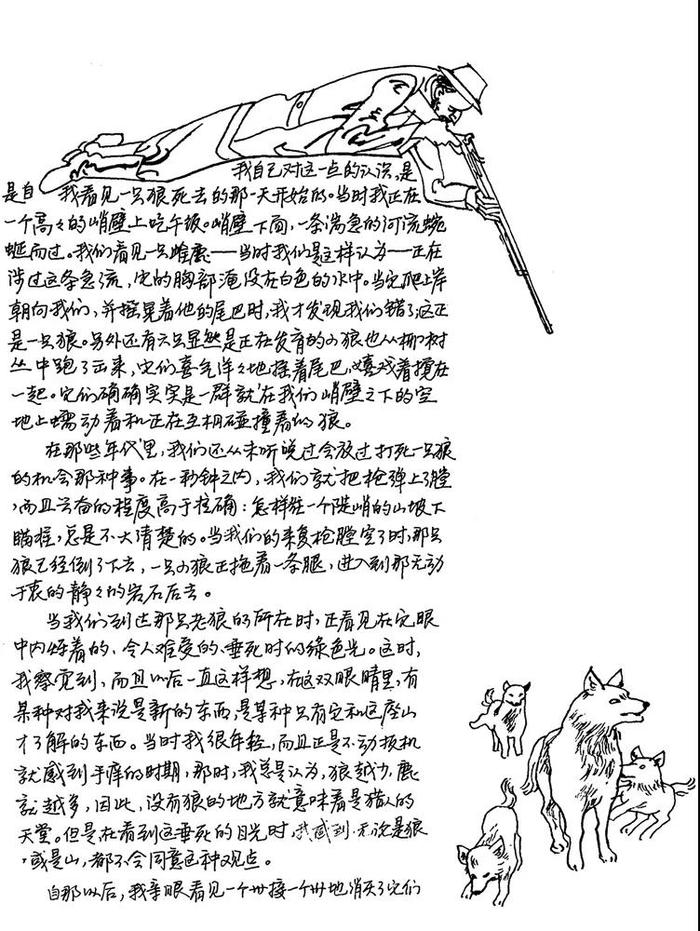 我自己对这一点的认识,是
是自 我看见一只狼死去的那一天开始的。当时我正在
一个高々的峭壁上吃午饭。峭壁下面,一条湍急的河流蜿
蜒而过。我们看见一只雌鹿——当时我们是这样认为——正在
涉过这条急流,它的胸部淹没在白色的水中。当它爬上岸
朝向我们,并摇晃着他的尾巴时,我才发现我们错了:这正
是一只狼。另外还有六只显然是正在发育的小狼也从柳树
丛中跑了出来,它们喜气洋々地摇着尾巴,嬉戏着搅在
一起。它们确确实实是一群就在我们峭壁之下的空
地上蠕动着和正在互相碰撞着的狼。
在那些年代里,我们还从未听说过会放过打死一只狼
的机会那种事。在一秒钟之内,我们就把枪弹上了膛
,而且兴奋的程度高于准确:怎样往一个陡峭的山坡下
瞄准,总是不大清楚的。当我们的来复枪膛空了时,那只
狼已经倒了下去,一只小狼正拖着一条腿,进入到那无动
于衷的静々的岩石后去。
当我们到达那只老狼的所在时,正看见在它眼
中闪烁着的、令人难受的、垂死时的绿色光。这时,
我察觉到,而且以后一直这样想,在这双眼睛里,有
某种对我来说是新的东西,是某种只有它和这座山
才了解的东西。当时我很年轻,而且正是不动扳机
就感到手痒的时期,那时,我总是认为,狼越少,鹿
就越多,因此,没有狼的地方就意味着是猎人的
天堂。但是在看到这垂死的目光时,我感到,无论是狼
,或是山,都不会同意这种观点。
自那以后,我亲眼看见一个州接一个州地消灭了它们